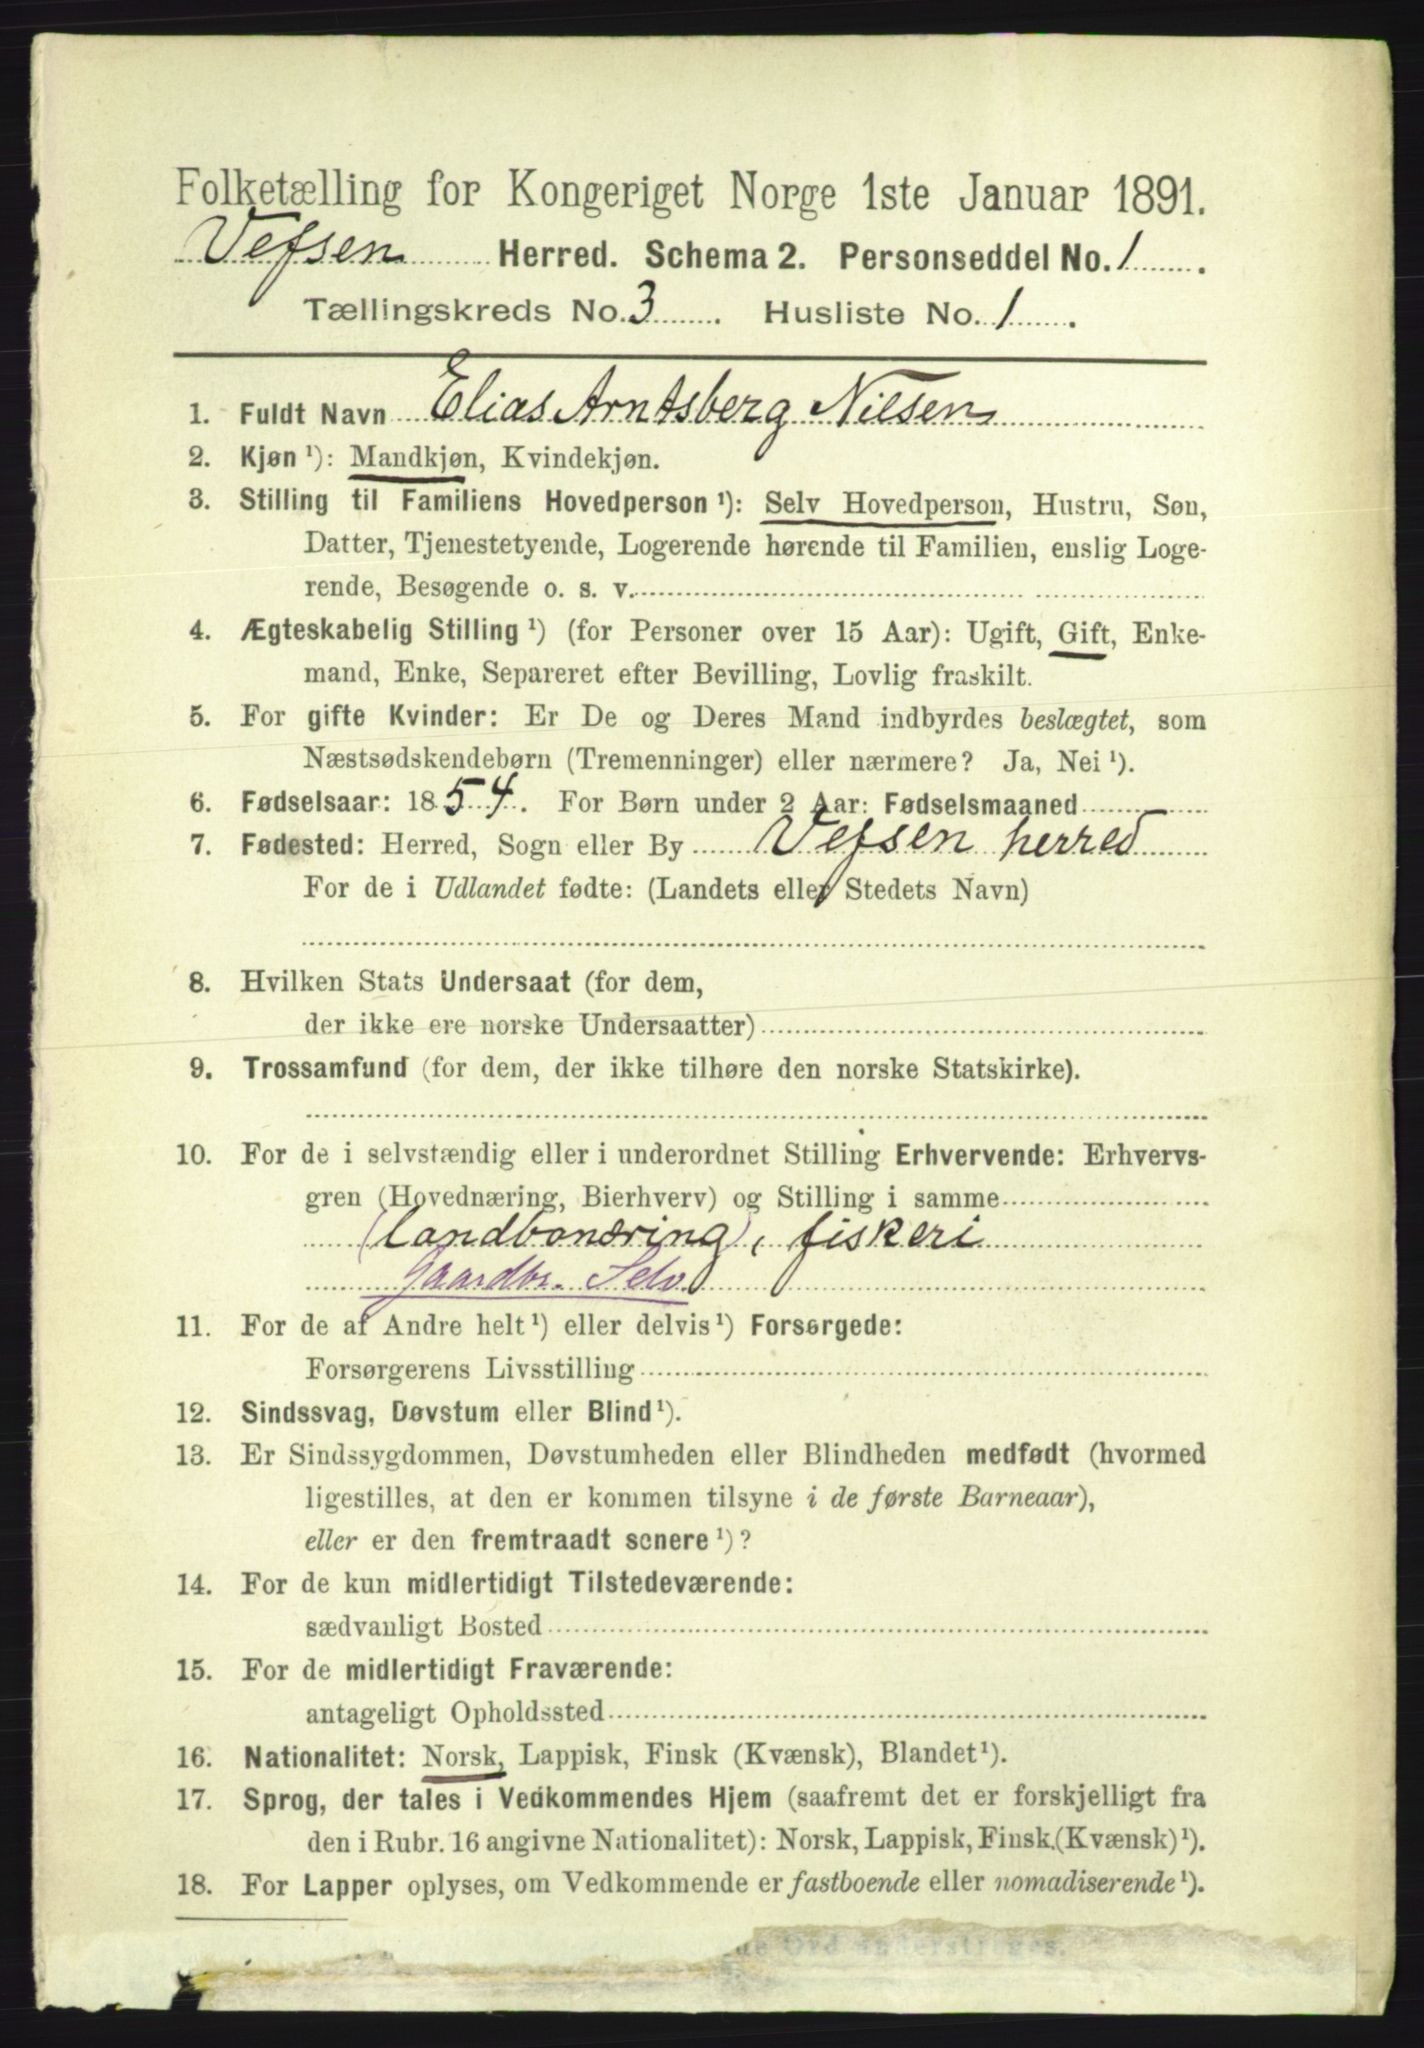 Folketælling for Kongeriget Norge 1ste Januar 1891.
Vefsen Herred. Schema 2. Personseddel No. 1.
Tællingskreds No. 3. Husliste No. 1.
1. Fuldt Navn Elias Arntsberg Nilsen
2. Kjøn ¹): Mandkjøn, Kvindekjøn.
3. Stilling til Familiens Hovedperson ¹): Selv Hovedperson, Hustru, Søn,
Datter, Tjenestetyende, Logerende hørende til Familien, enslig Loge-
rende, Besøgende o. s. v.
4. Ægteskabelig Stilling ¹) (for Personer over 15 Aar): Ugift, Gift, Enke-
mand, Enke, Separeret efter Bevilling, Lovlig fraskilt.
5. For gifte Kvinder: Er De og Deres Mand indbyrdes beslægtet, som
Næstsødskendebørn (Tremenninger) eller nærmere? Ja, Nei ¹).
6. Fødselsaar: 1854. For Børn under 2 Aar: Fødselsmaaned
7. Fødested: Herred, Sogn eller By Vefsen herred
For de i Udlandet fødte: (Landets eller Stedets Navn)
8. Hvilken Stats Undersaat (for dem,
der ikke ere norske Undersaatter)
9. Trossamfund (for dem, der ikke tilhøre den norske Statskirke).
10. For de i selvstændig eller i underordnet Stilling Erhvervende: Erhvervs-
gren (Hovednæring, Bierhverv) og Stilling i samme
(landbonæring), fiskeri
Gaardbr. Selv
11. For de af Andre helt ¹) eller delvis ¹) Forsørgede:
Forsørgerens Livsstilling
12. Sindssvag, Døvstum eller Blind ¹).
13. Er Sindssygdommen, Døvstumheden eller Blindheden medfødt (hvormed
ligestilles, at den er kommen tilsyne i de første Barneaar),
eller er den fremtraadt senere ¹)?
14. For de kun midlertidigt Tilstedeværende:
sædvanligt Bosted
15. For de midlertidigt Fraværende:
antageligt Opholdssted
16. Nationalitet: Norsk, Lappisk, Finsk (Kvænsk), Blandet ¹).
17. Sprog, der tales i Vedkommendes Hjem (saafremt det er forskjelligt fra
den i Rubr. 16 angivne Nationalitet): Norsk, Lappisk, Finsk (Kvænsk) ¹).
18. For Lapper oplyses, om Vedkommende er fastboende eller nomadiserende ¹).
Ord understreges.